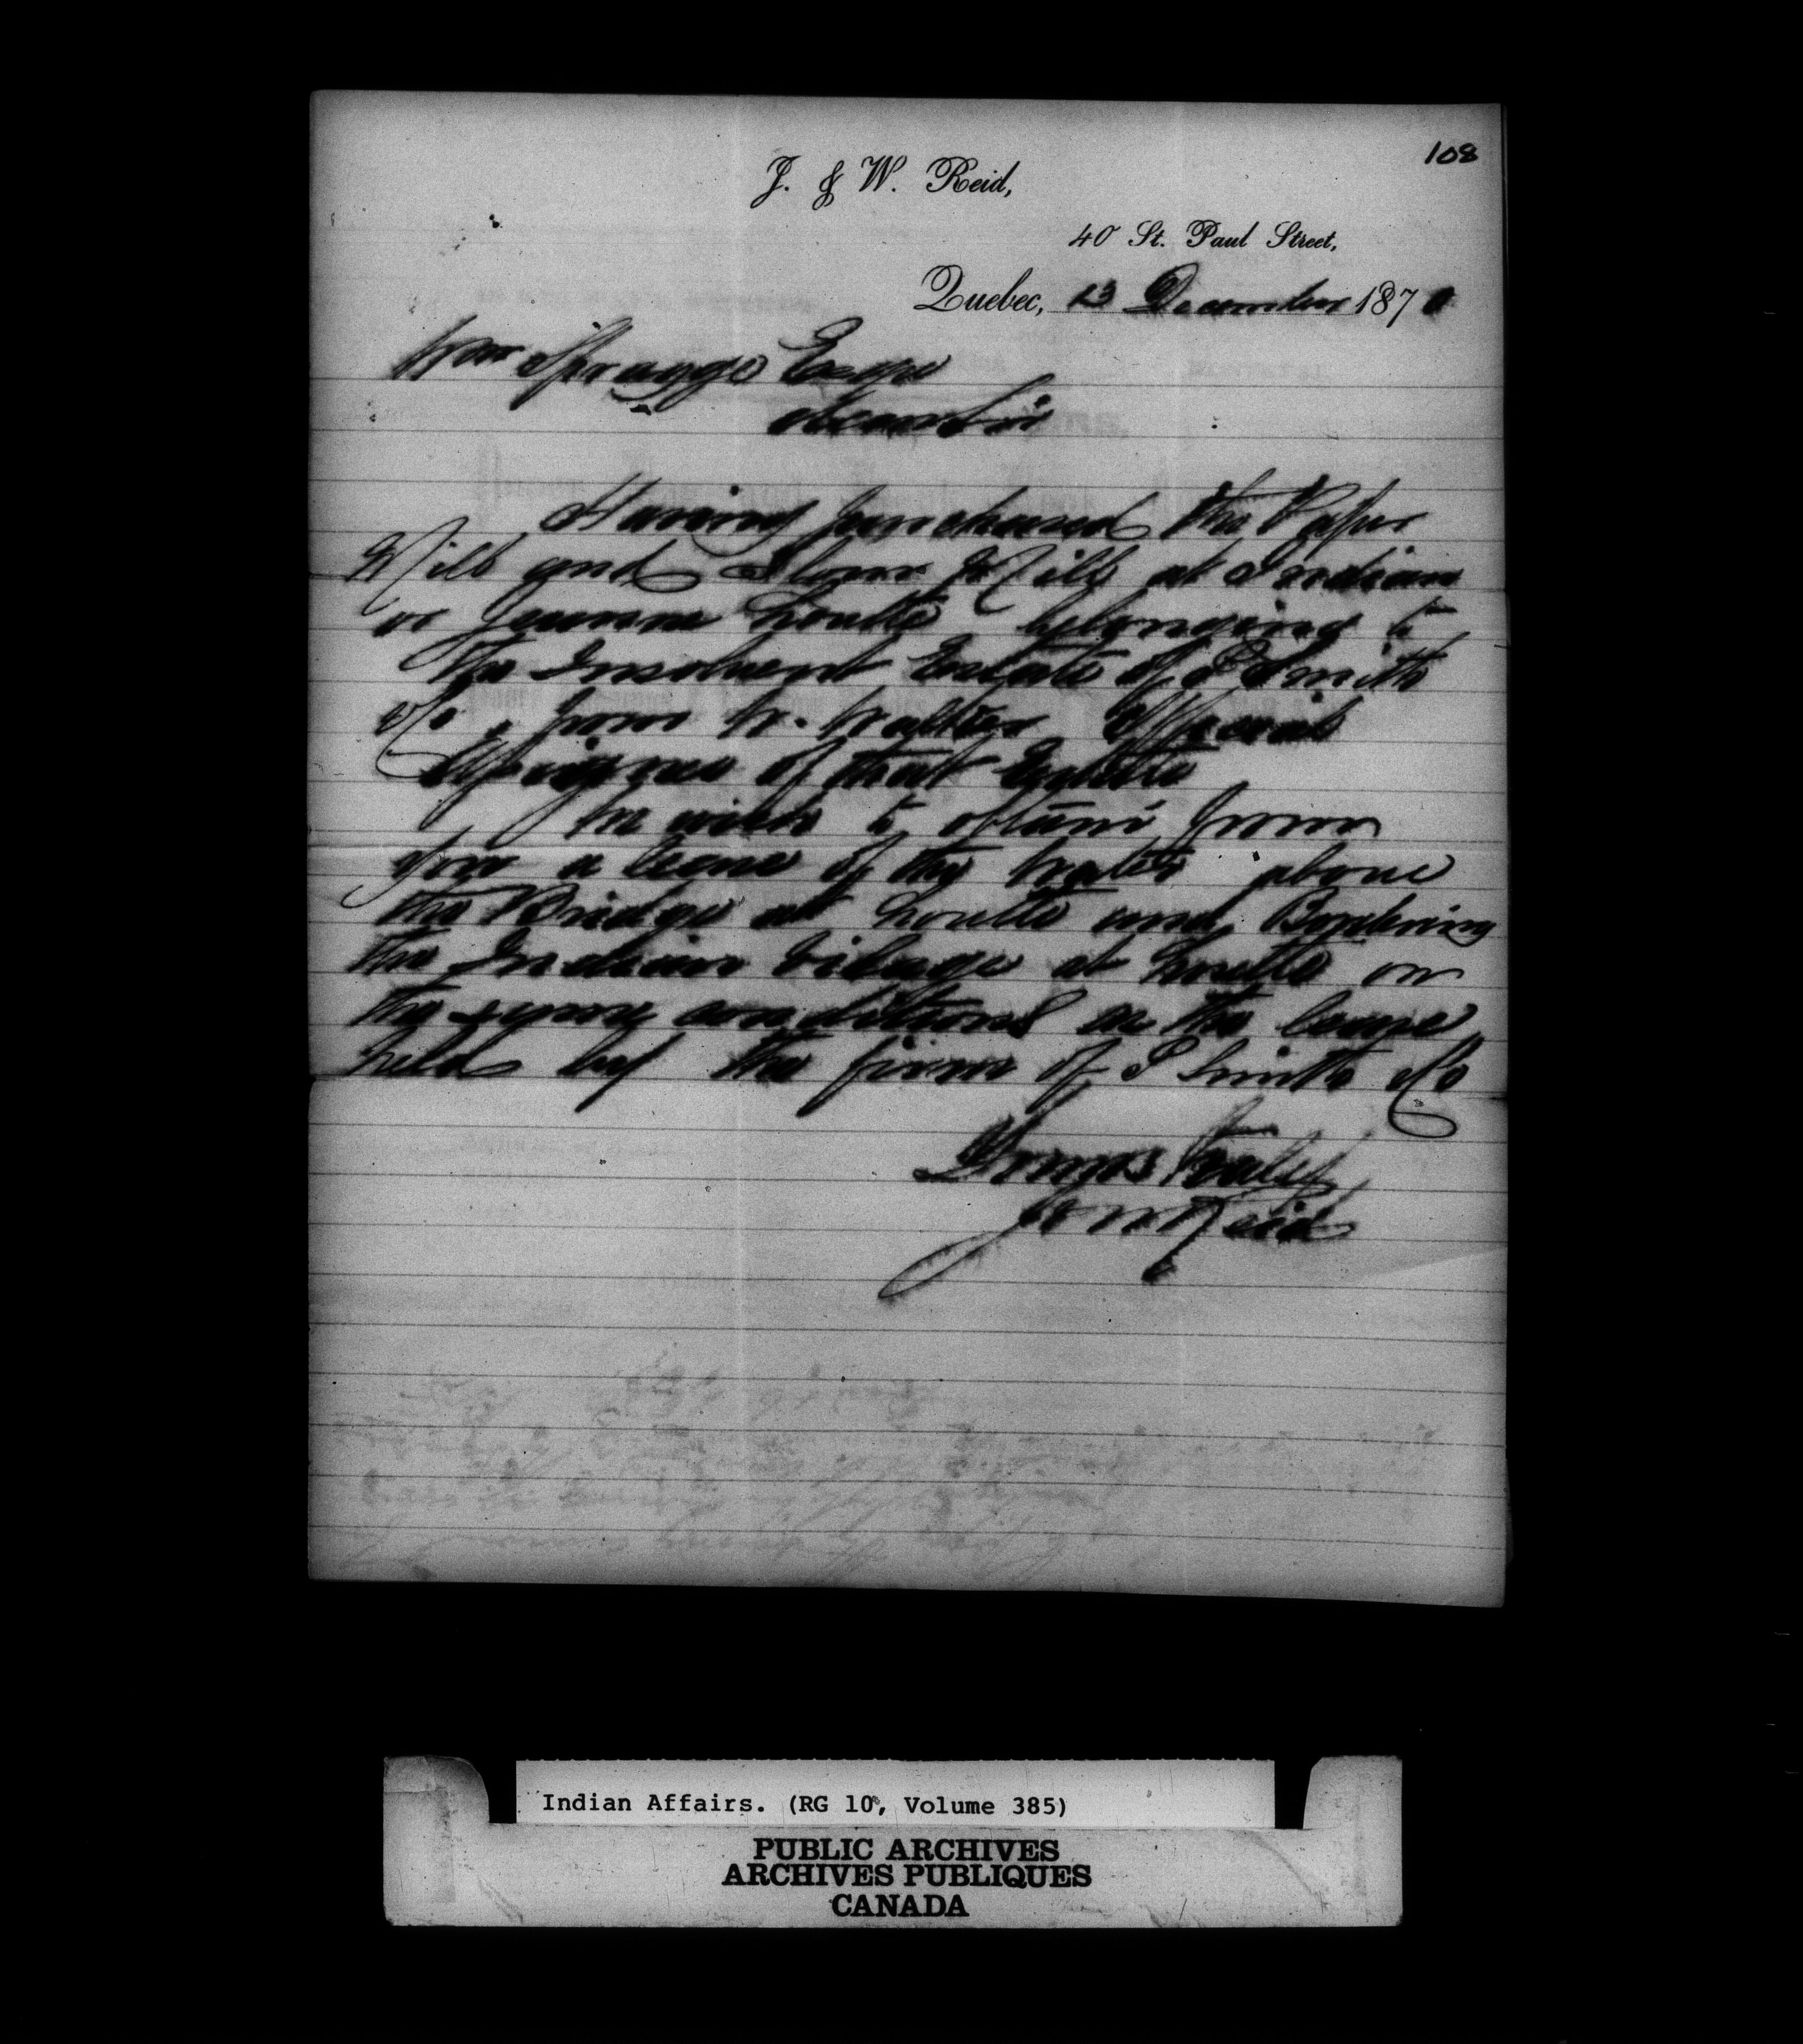 108
J. & W. Reid,
40 St. Paul Street,
Quebec, 13 December 1870
Wm Spragge Esqr
Dear Sir
Having purchased the Paper
Mill and Flour Mill at Indian
or Jeunne Lorette belonging to
the Insolvent Estate of S Smith
& Co, from W. Walker Official
Assignee of that Estate
We wish to obtain from
you a lease of the Water above
the Bridge at Lorette and Bordering
the Indian Village at Lorette on
the same conditions as the lease
held by the firm of S Smith & Co
Yours Truly
J & W Reid
Indian Affairs. (RG 10, Volume 385)
PUBLIC ARCHIVES
ARCHIVES PUBLIQUES
CANADA